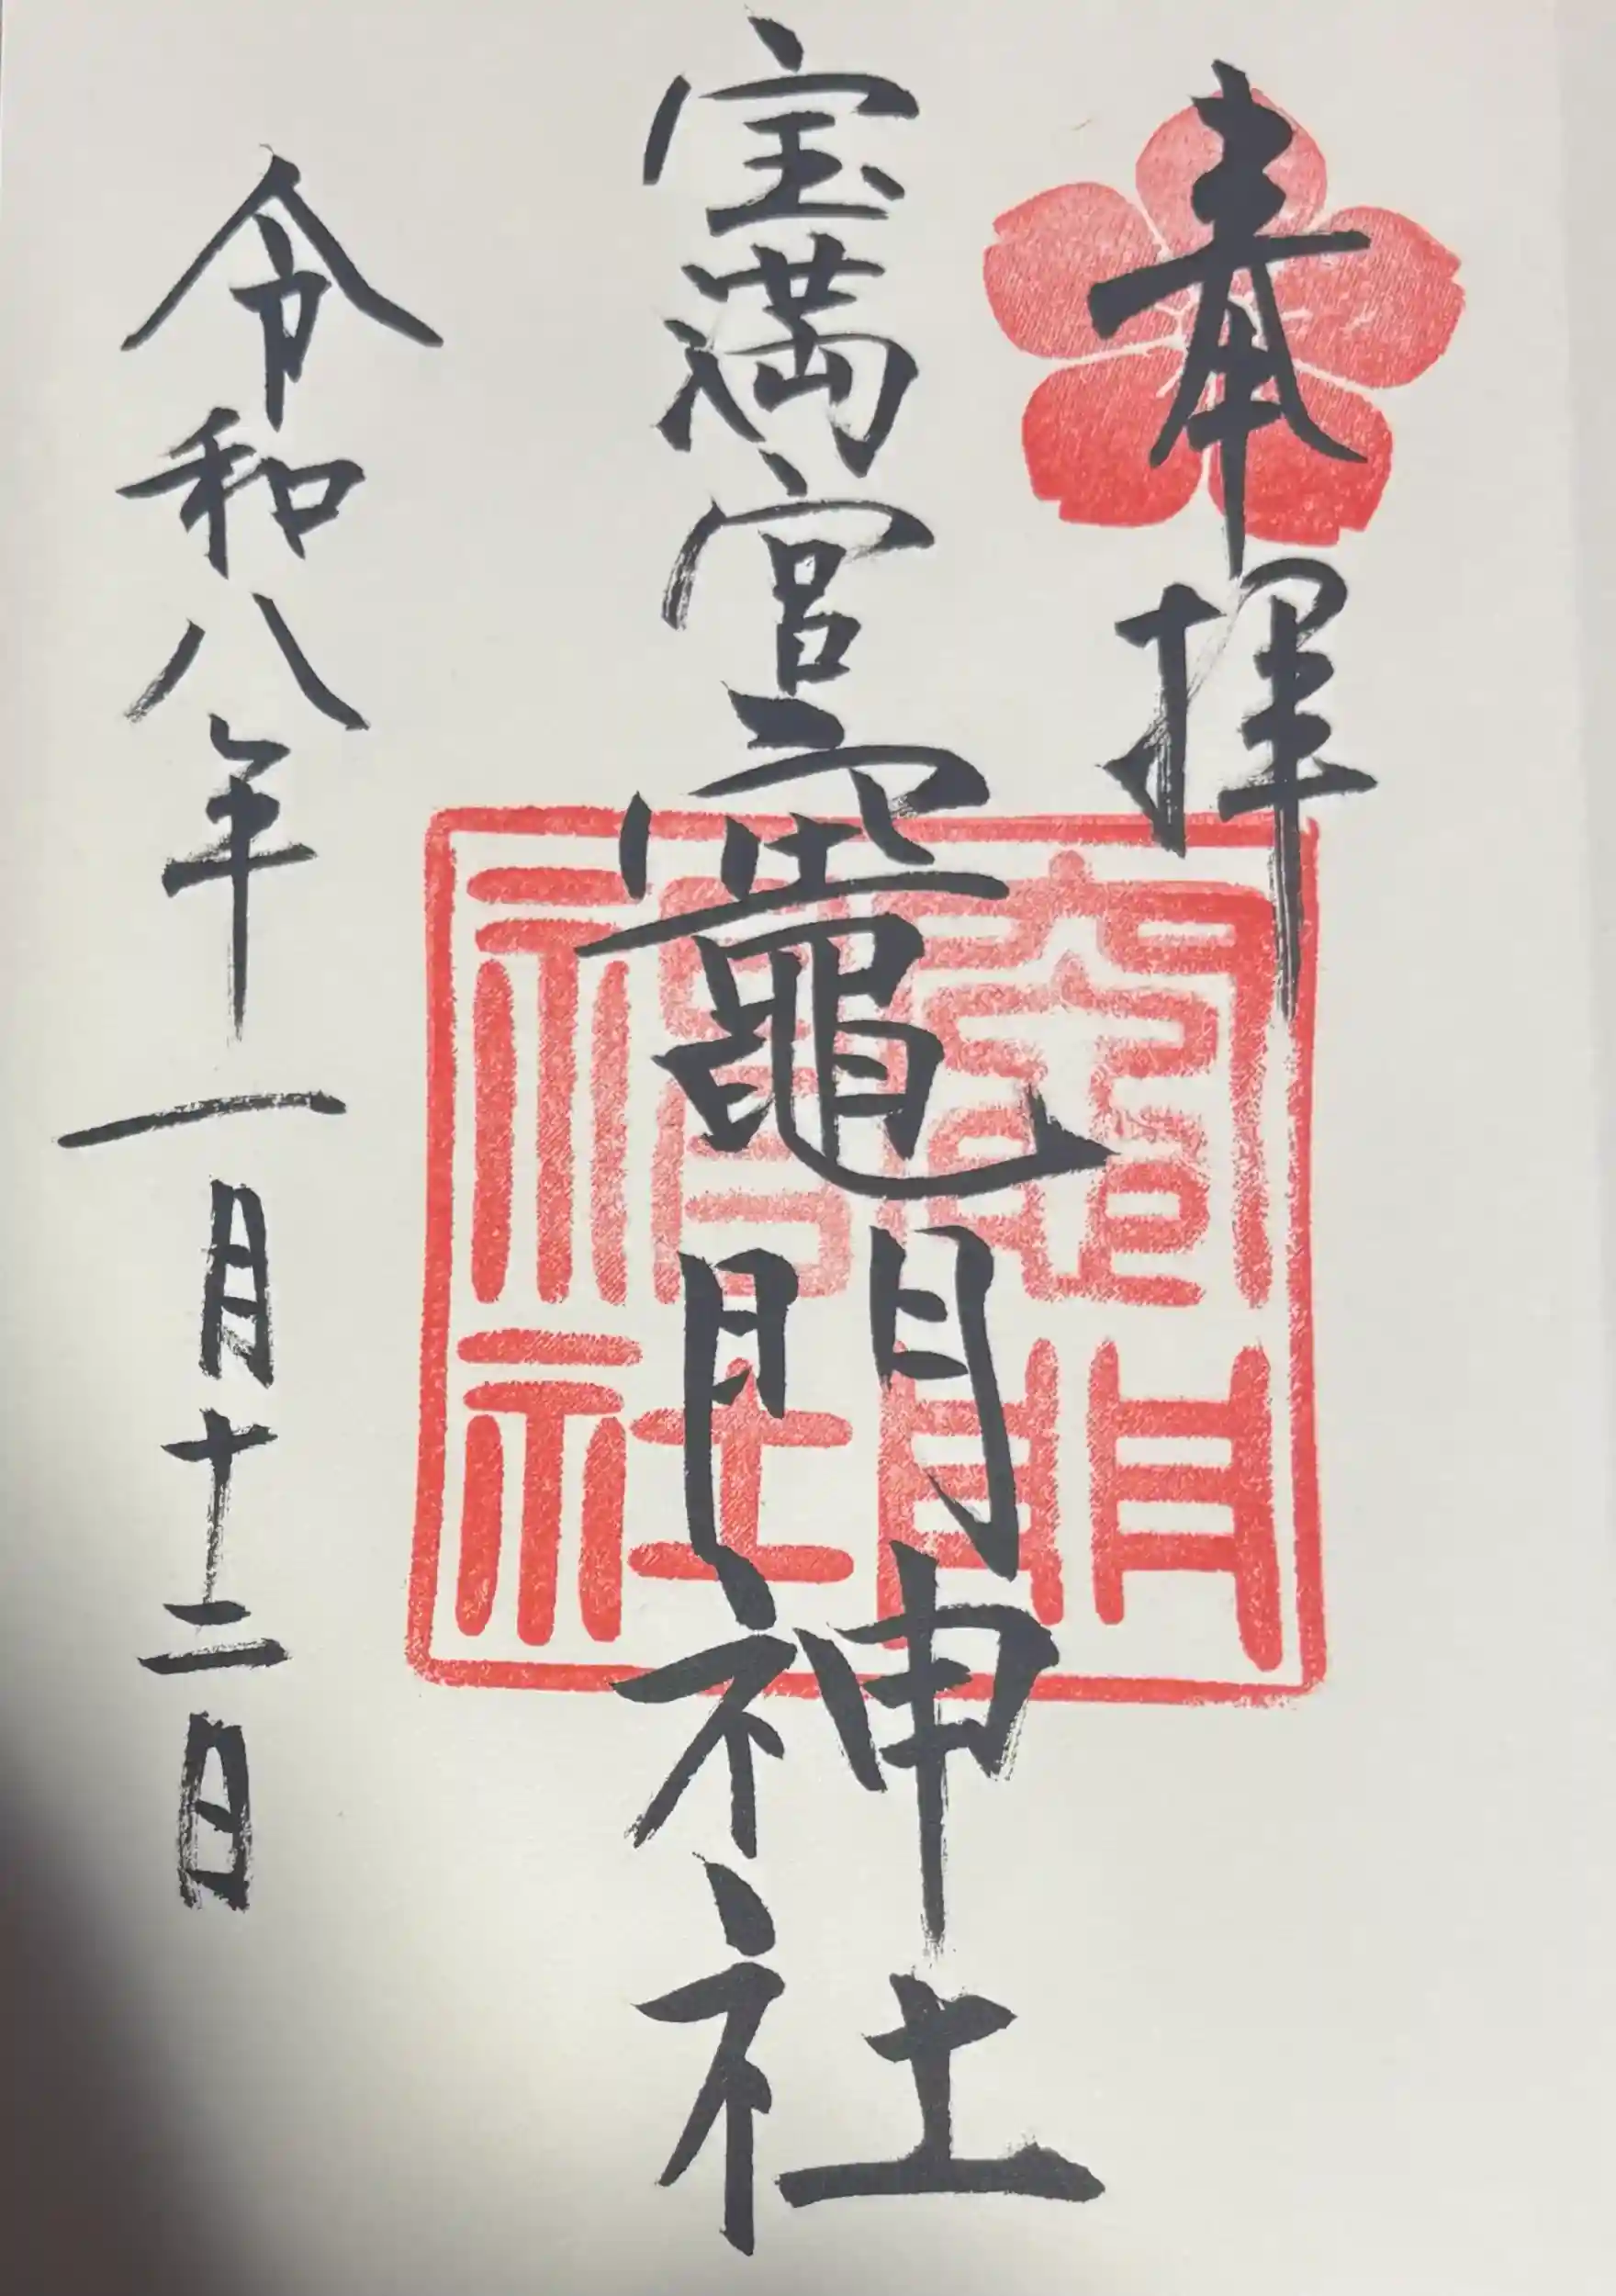 奉拝
宝満宮竈門神社
令和八年一月十二日
竈門
神社